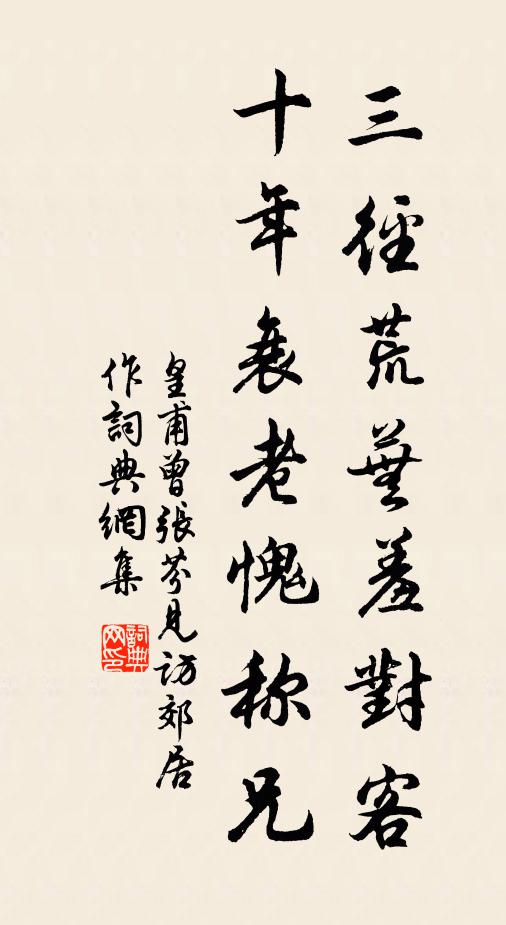 三徑荒蕪羞對客
十年衰老愧称兄
皇甫曾張芬見訪郊居
作詞典網集
詞典
网印